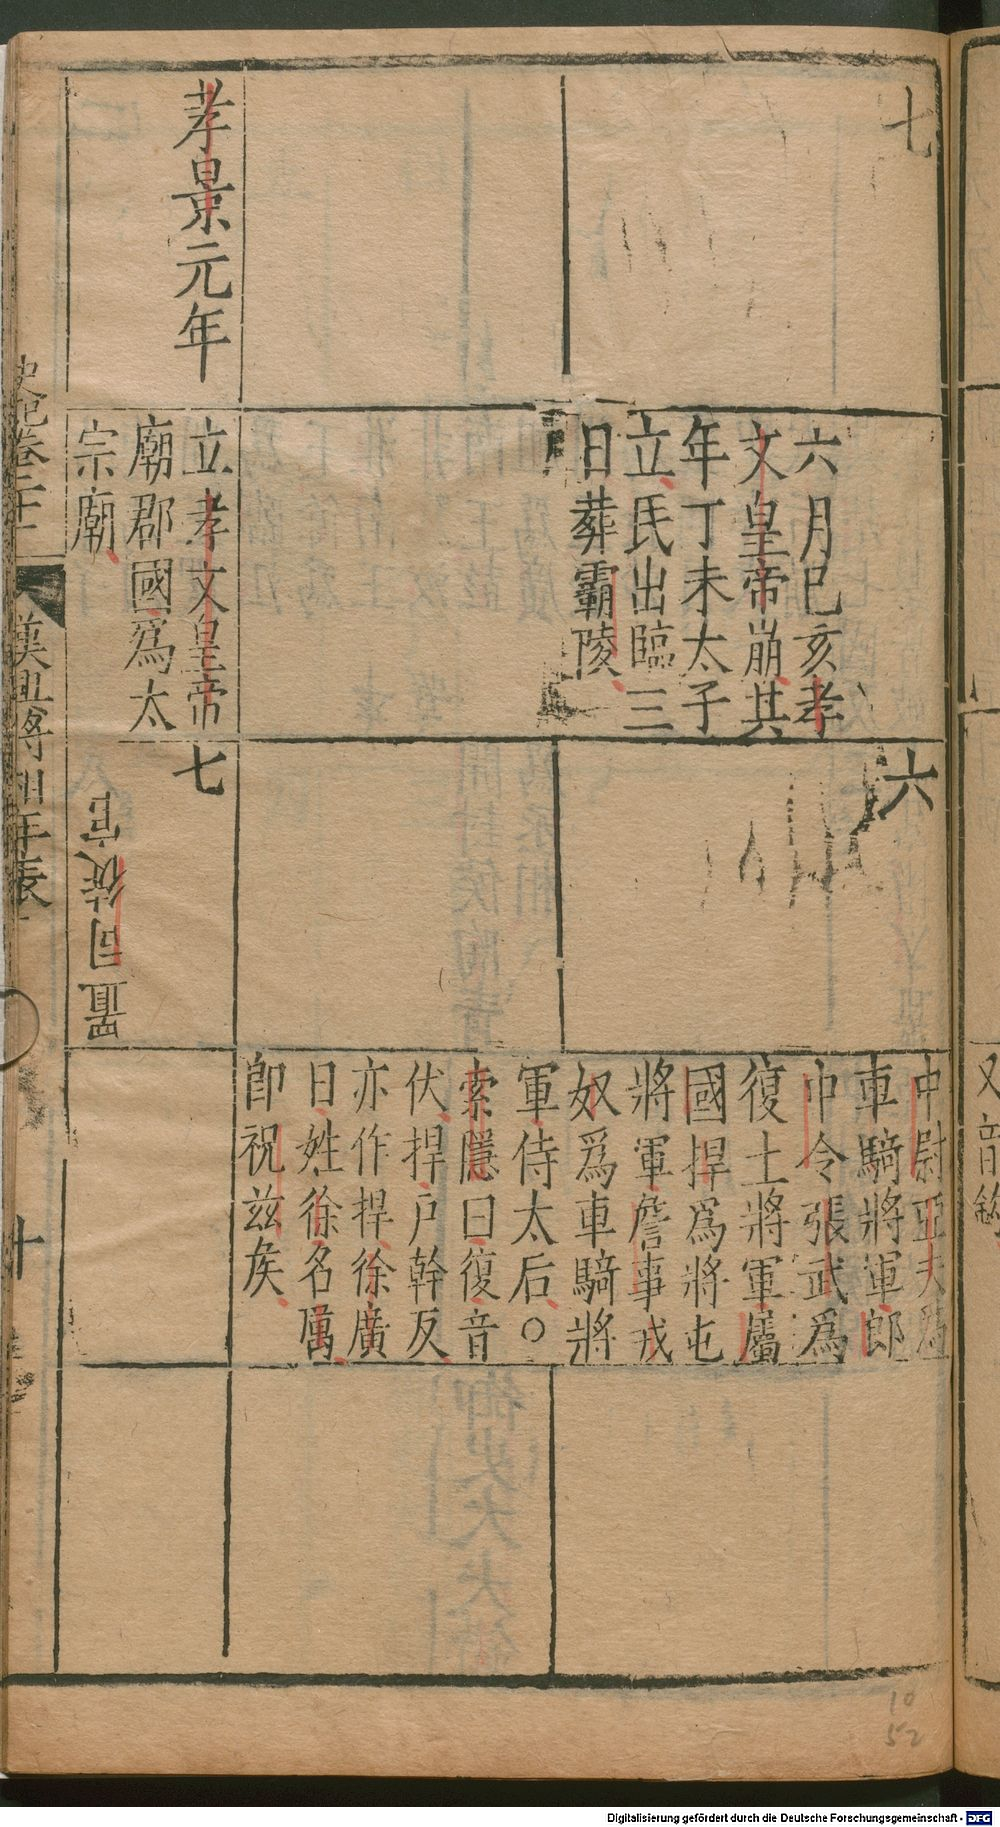 七
六月己亥孝
文皇帝崩其
年丁未太子
立民出臨三
日葬霸陵
六
中尉亞夫爲
車騎將軍郎
中令張武爲
復土將軍屬
國捍爲將屯
將軍詹事戎
奴爲車騎將
軍侍太后〇
索隱曰復音
伏捍戸幹反
亦作捍徐廣
曰姓徐名厲
即祝兹矦
孝景元年
立孝文皇帝
廟郡國爲太
宗廟
七
置司徒官
史記卷二十二
漢興將相年表
十
又音
10
52
Digitalisierung gefördert durch die Deutsche Forschungsgemeinschaft - DFG